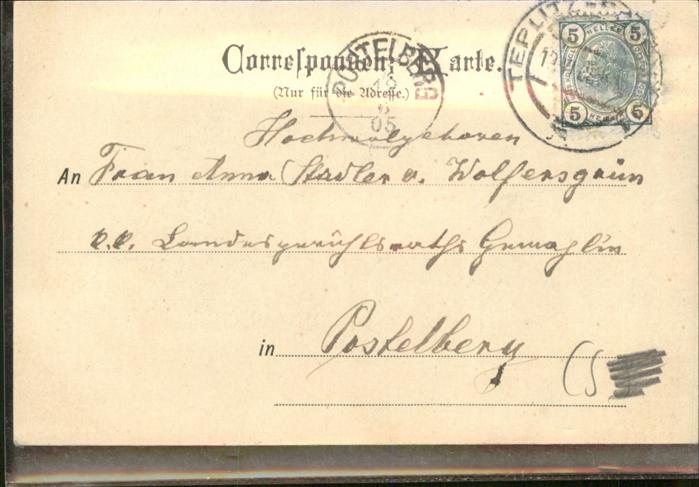 Correspondenz-Karte.
(Nur für die Adresse.)
POSTELBERG
18
6
05
TEPLITZ
5 HELLER 5
5 5
Hochwolgeboren
An Frau Anna Stadler v. Wolfersgrün
k.k. Landesgerichtsraths Gemahlin
in Postelberg